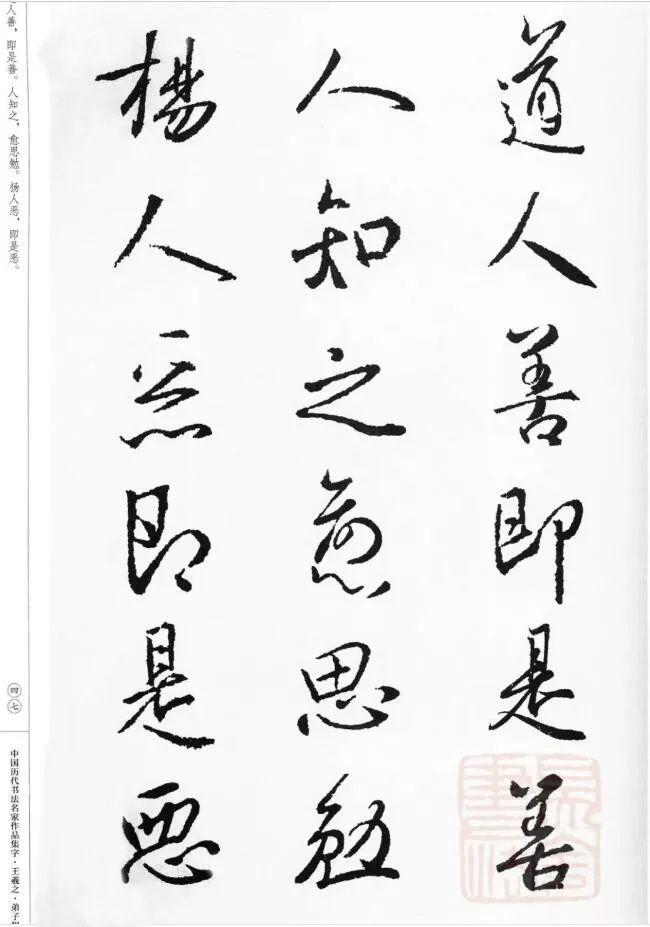 道人善即是善
人知之愈思勉
楊人恶即是惡
人善，即是善。人知之，愈思勉。扬人恶，即是恶。
四七
中国历代书法名家作品集字·王羲之·弟子